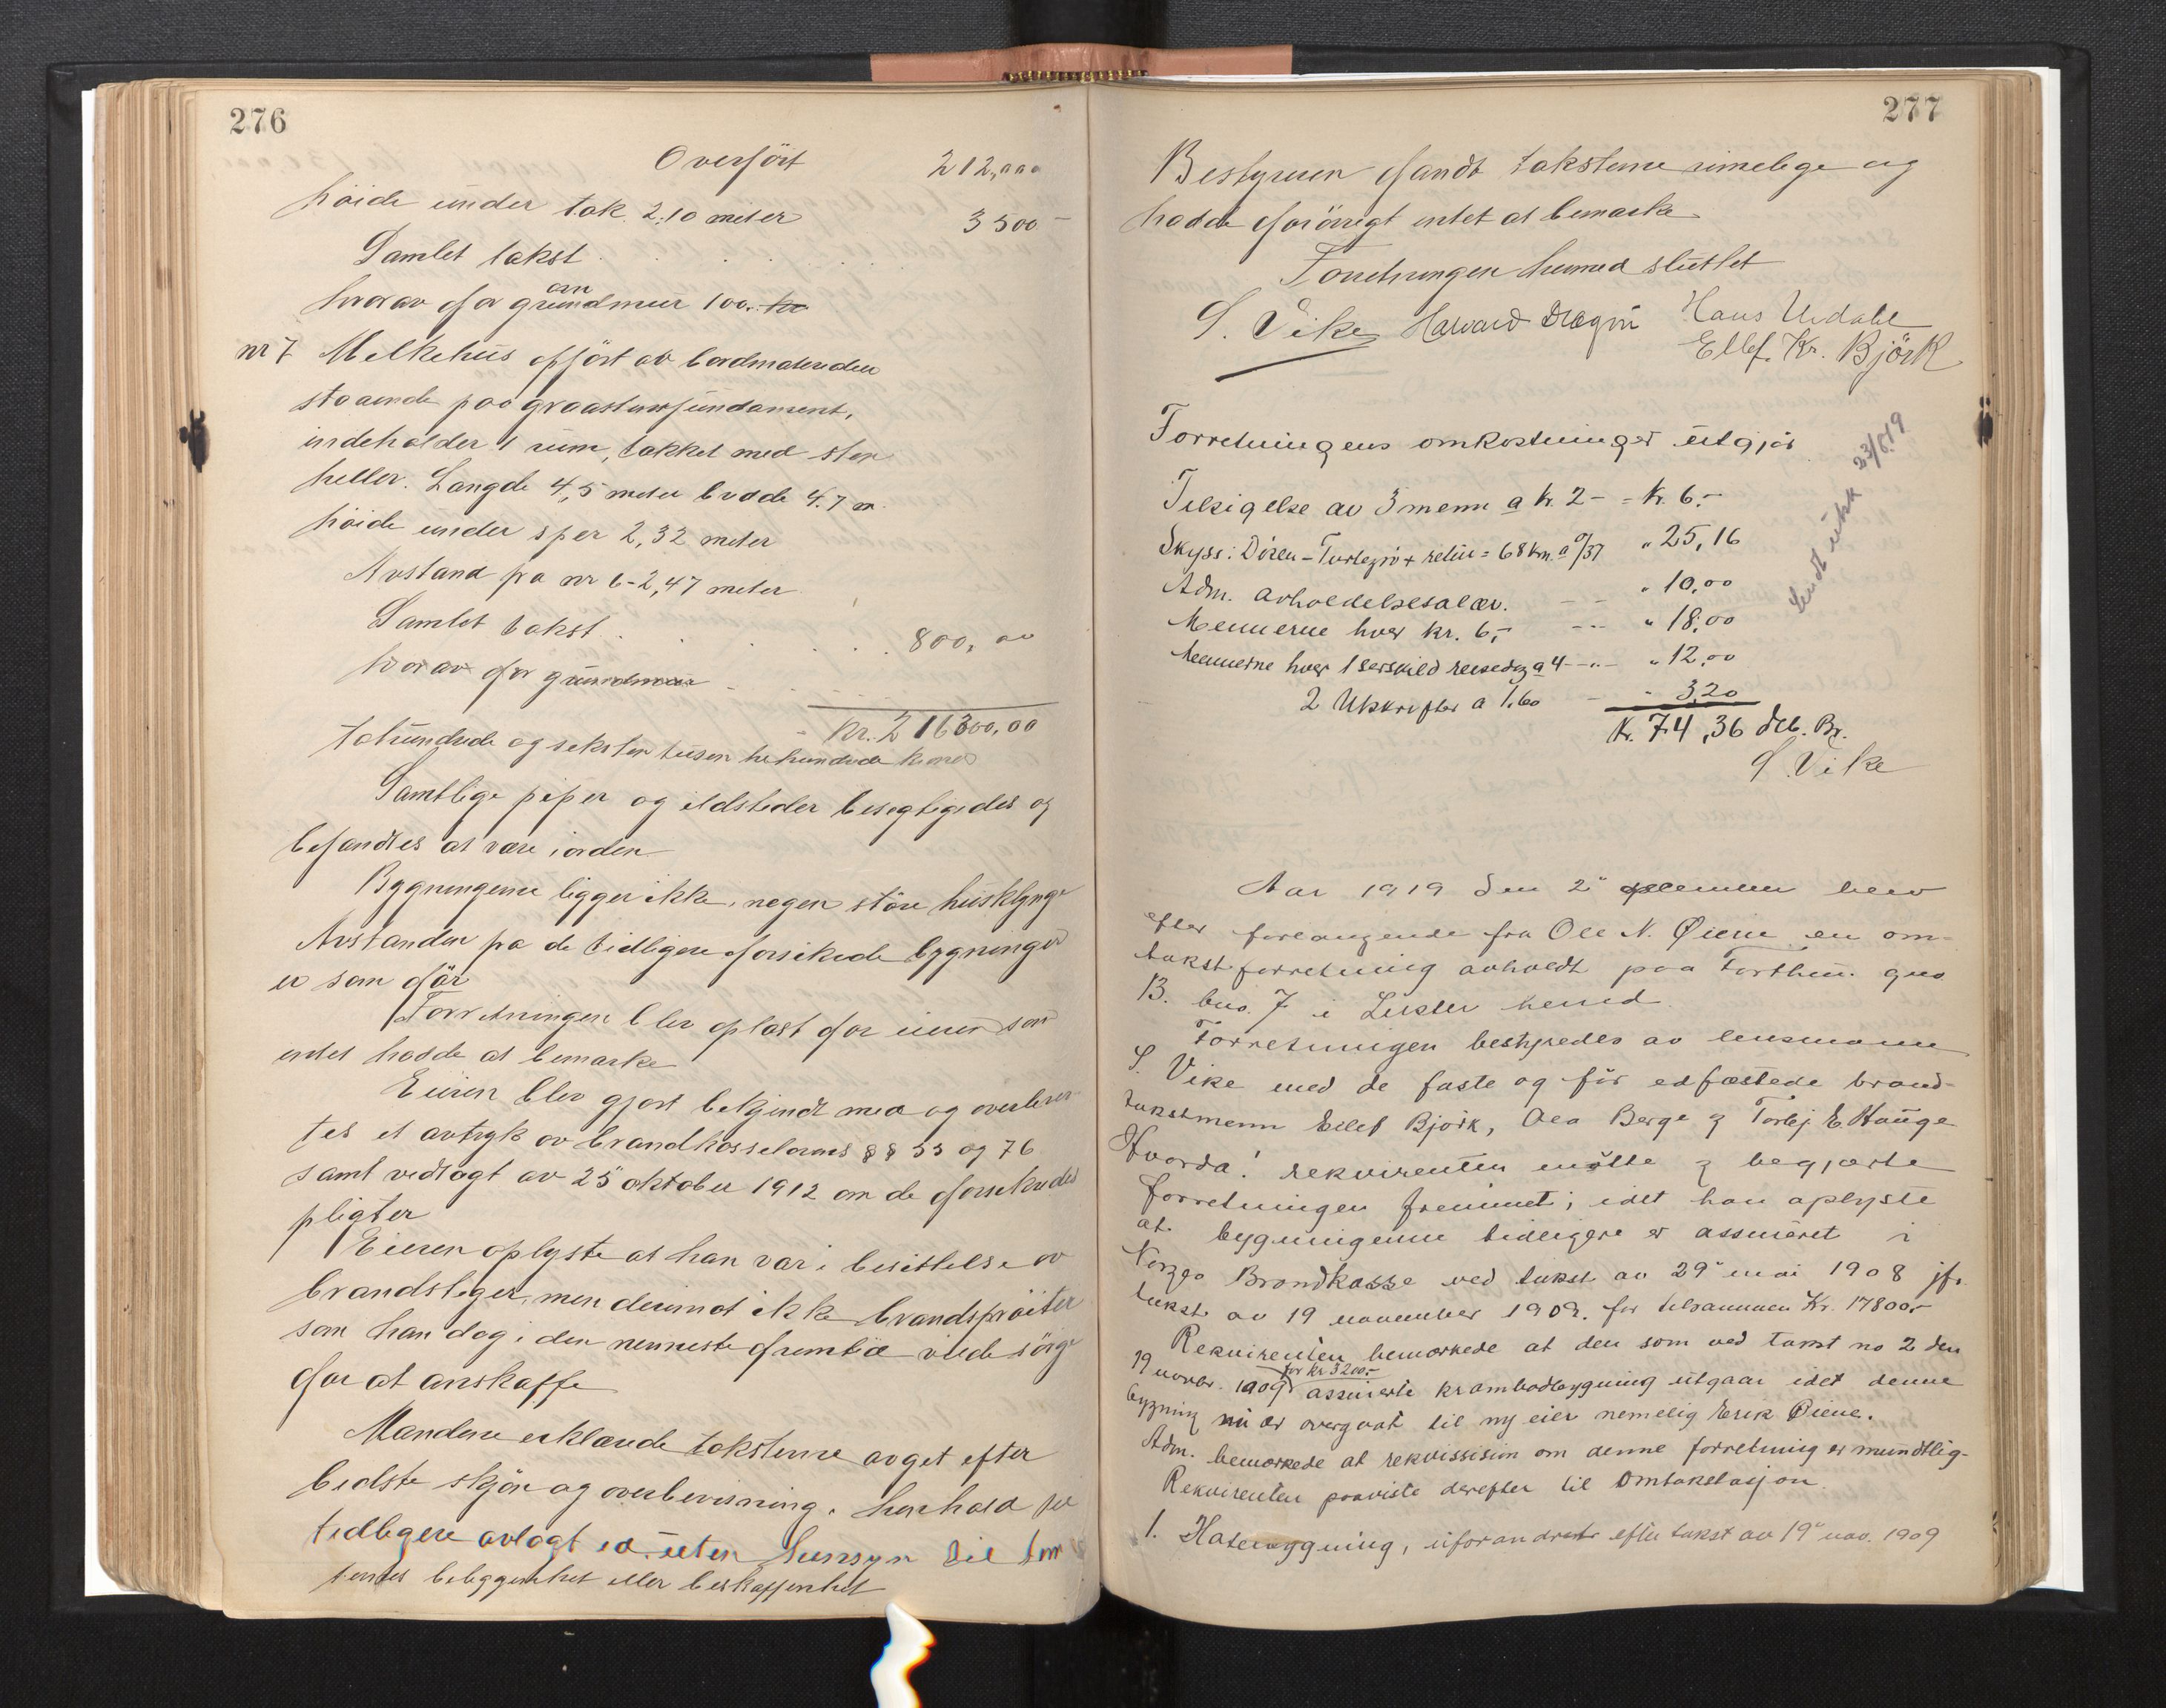 276
Overført 212,000
høide under tak 2.10 meter 3500 -
Samlet takst
hvorav for grundmur 100.
nr 7 Melkehus opført av bordmaterialer
staaende paa graastensfundament,
indeholder 1 rum, takket med sten
heller. Længde 4,5 meter bredde 4.7 m.
høide under sper 2,32 meter
Avstand fra nr 6 - 2,47 meter
Samlet takst 800,00
hvorav for grundmur
Kr. 216300,00
tohundrede og seksten tusen trehundrede kroner
Samtlige piper og ildsteder besegtigedes og
befandtes at være i orden
Bygningerne ligger ikke i nogen større husklynge
Avstanden fra de tidligere forsikrede bygninger
er som før
Forretningen blev oplæst for eieren som
intet hadde at bemærke
Eieren blev gjort bekjendt med og overlever-
tes et avtryk av brandkasselovens §§ 53 og 76
samt vedtægt av 25 oktober 1912 om de forsikredes
pligter
Eieren oplyste at han var i besittelse av
brandstiger, men derimot ikke brandsprøiter
som han dog i den nærmeste fremtid vilde sørge
for at anskaffe
Mændene erklærede taksterne avget efter
bedste skjøn og overbevisning i henhold til
tidligere avlagt ed uten hensyn til tom
tenes beliggenhet eller beskaffenhet
277
Bestyreren fandt taksterne rimelige og
hadde forøvrigt intet at bemærke
Forretningen hermed sluttet
S. Vike Halvard Drægni Hans Urdahl
Ellef. Kr. Björk
Forretningens omkostninger utgjør
Sendt utskr 23/8 19
Tilsigelse av 3 menn a kr. 2 - = Kr. 6.-
Skyss: Døsen - Turtegrø + retur = 68 km. a 0/37 " 25,16
Adm. avholdelsesalær. - - " 10,00
Mennerne hver kr. 6,- - - " 18,00
Mennerne hver 1 serskild reisedag a 4 - " - " 12,00
2 Utskrifter a 1.60 - " 3,20
Kr. 74,36 Deb. Br.
S. Vike
Aar 1919 den 2" december blev
efter forlangende fra Ole N. Øiene en om-
takstforretning avholdt paa Forthun. gno
13. bno. 7 i Luster herred.
Forretningen bestyredes av lensmann
S. Vike med de faste og før edfæstede brand-
takstmenn Ellef Bjørk, Ola Berge & Torbj. E. Hauge
Hvorda! rekvirenten møtte & begjærte
forretningen fremmet; idet han oplyste
at bygningerne tidligere er assureret i
Norges Brandkasse ved takst av 29" mai 1908 jfr.
takst av 19 november 1909. for tilsammen Kr. 17800.-
Rekvirenten bemerkede at den som ved takst no 2 den
19 novbr. 1909 for kr 3200.- assurerte krambodbygning utgaar idet denne
bygning nu er overgaat til ny eier nemelig Erik Øiene.
Adm. bemerkede at rekvissision om denne forretning er mundtlig-
Rekvirenten paaviste derefter til Omtakstasjon.
1. Hatebygning, uforandrede efter takst av 19" nov. 1909